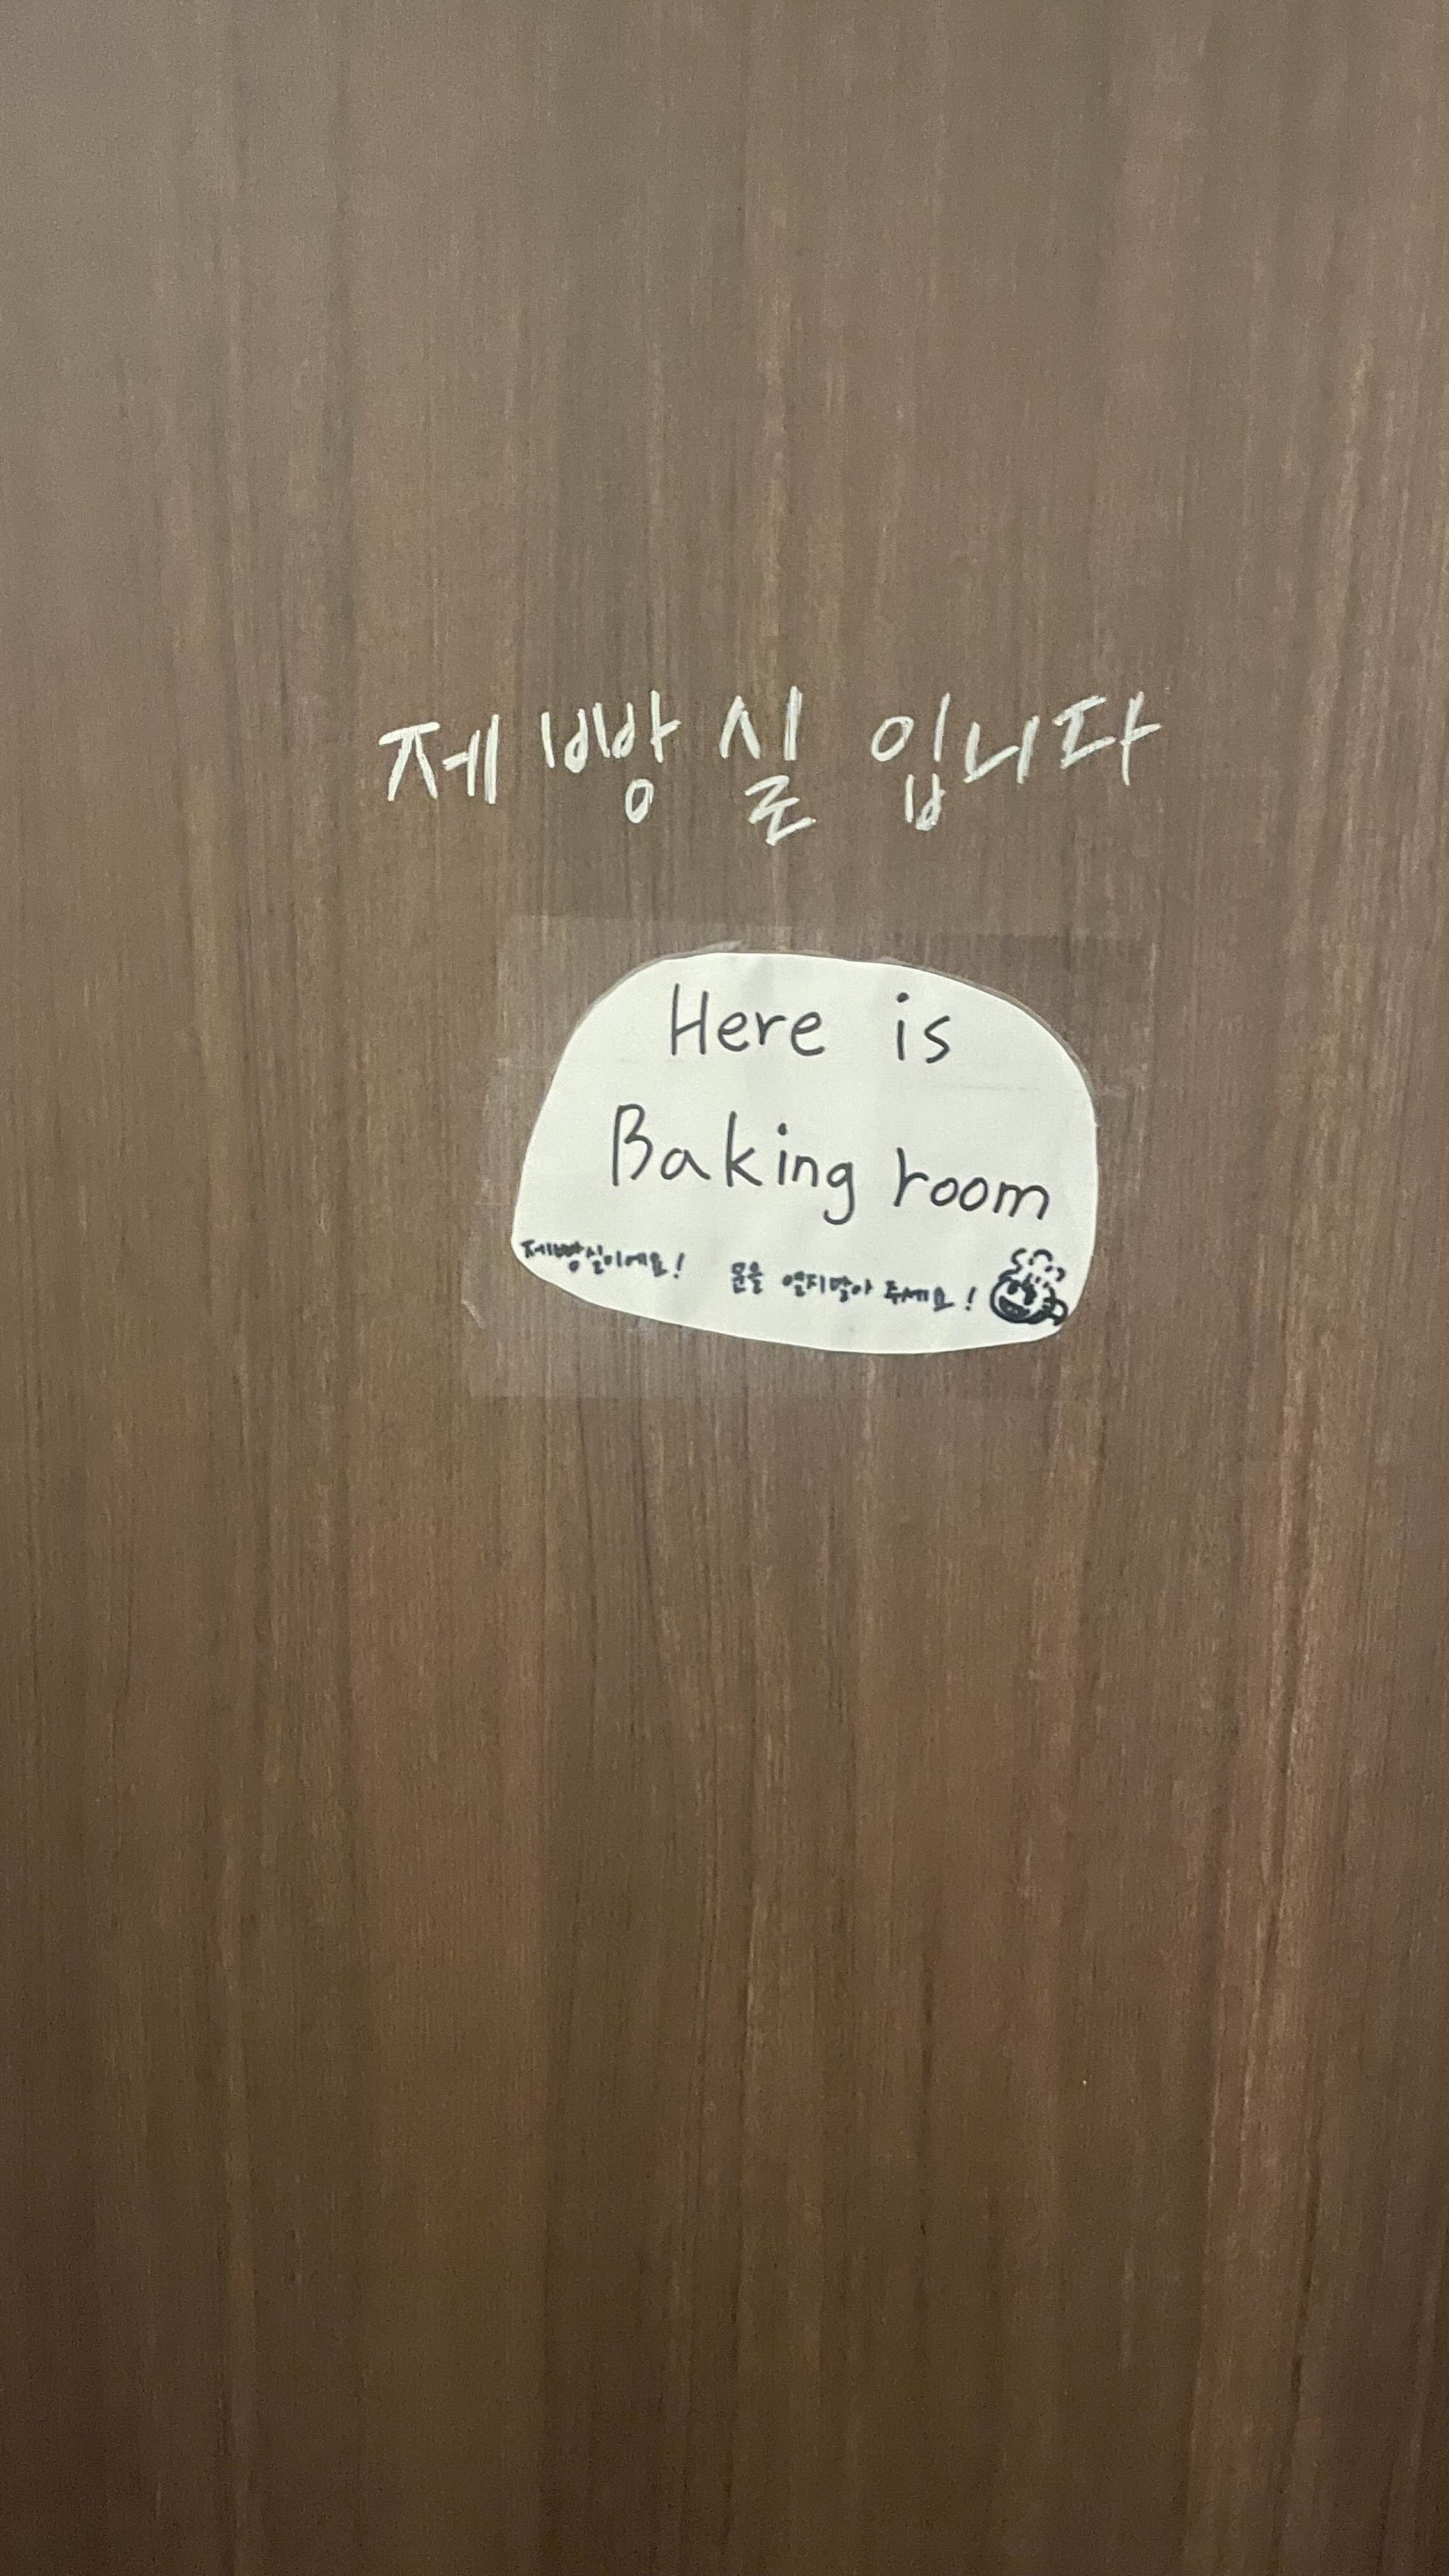 제빵실 입니다
Here is
Baking room
제빵실이에요! 문을 열지말아 주세요!